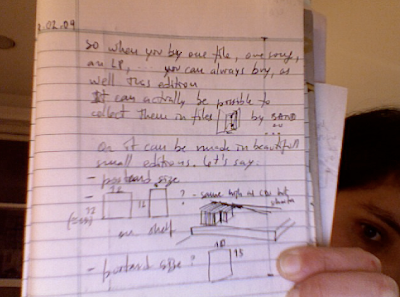 2.02.09
So when you by one file, one song,
an LP, .... you can always buy, as
well this edition
It can actually be possible to
collect them in files by
Or it can be made in beautifull
small editions. Let's say:
- postcard size
? - same high as CDs but
12
one shelf
- postcard size ?
10
15